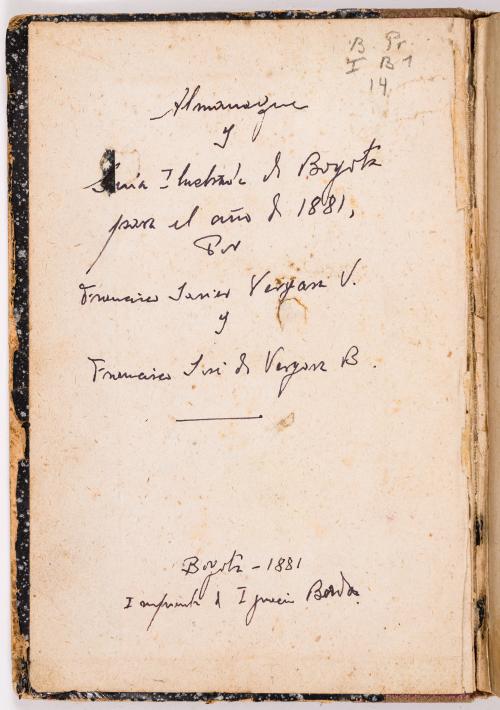 B Pr
I B1
14
Almanaque
y
Guía Ilustrada de Bogotá
para el año de 1881,
Por
Francisco Javier Vergara V.
y
Francisco José de Vergara B.
Bogotá - 1881
Imprenta de Ignacio Borda.